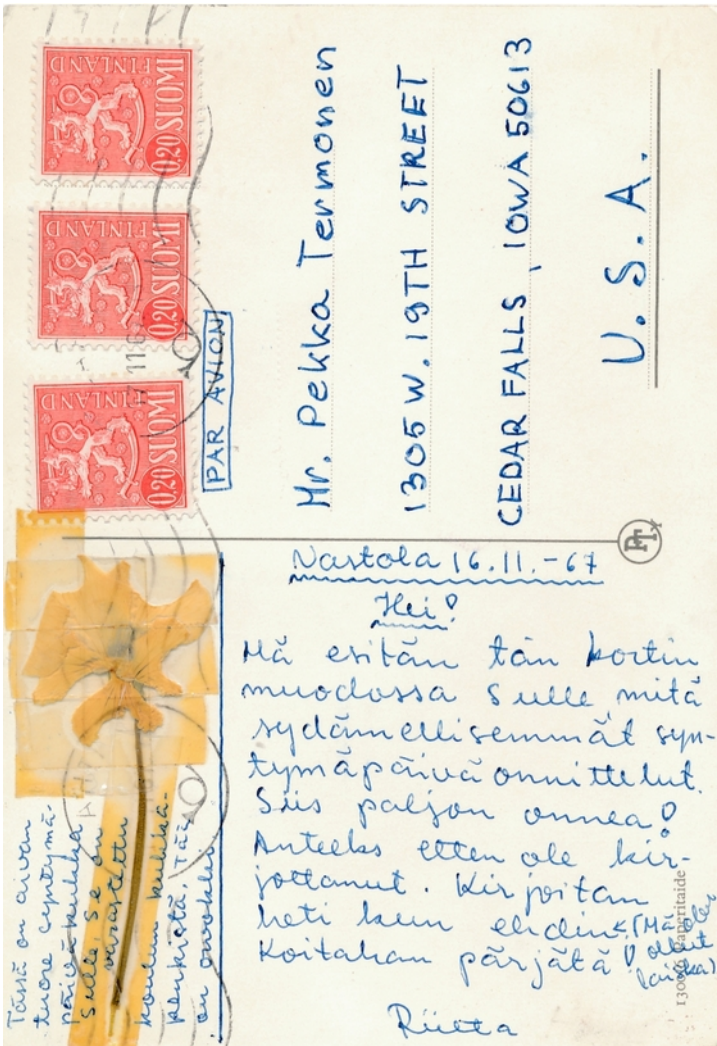 0,20 SUOMI
FINLAND
0,20 SUOMI
FINLAND
0,20 SUOMI
FINLAND
PAR AVION
Mr. Pekka Termonen
1305 W. 19TH STREET
CEDAR FALLS, IOWA 50613
U.S.A.
Nastola 16.11.-67
Hei!
Mä esitän tän kortin
muodossa sulle mitä
sydämellisemmät syn-
tymäpäiväonnittelut.
Siis paljon onnea!
Anteeks etten ole kir-
jottanut. Kirjoitan
heti kun ehdin. (Mä olen
ollut
laiska)
Koitahan pärjätä!
Riitta
Tässä on aivan
tuore syntymä-
päiväkukka
sulle, se on
varastettu
koulun kukka-
penkistä. Tää
on orvokki.
130076 Paperitaide